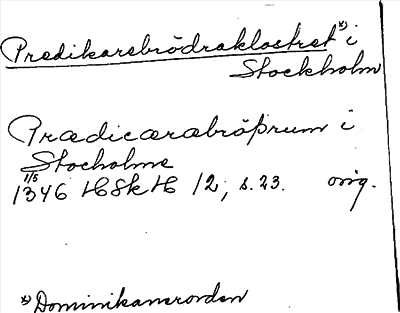 Predikarebrödraklostret *) i
Stockholm
Prædicæræbröþrum i
Stocholme
1/5
1346 HSkH 12, s. 23. orig.
*) Dominikanerorden